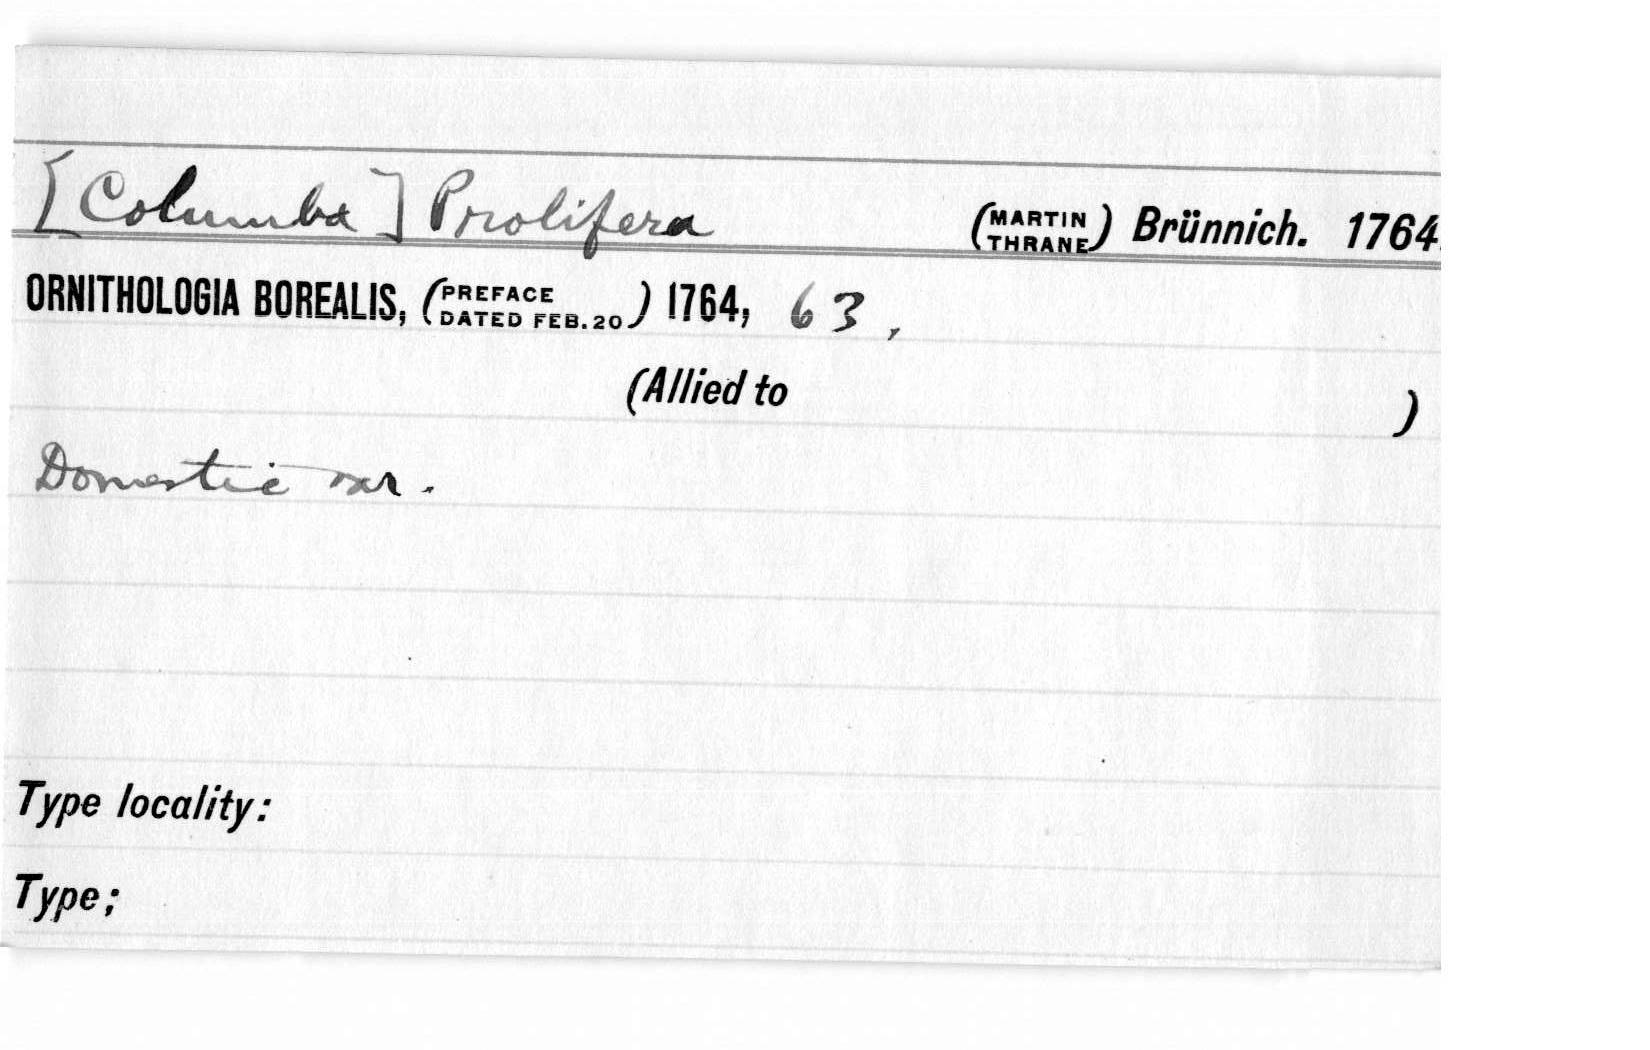 [Columba] Prolifera (MARTIN THRANE) Brünnich. 1764.
ORNITHOLOGIA BOREALIS, (PREFACE DATED FEB. 20) 1764, 63,
(Allied to )
Domestic var.
Type locality:
Type;